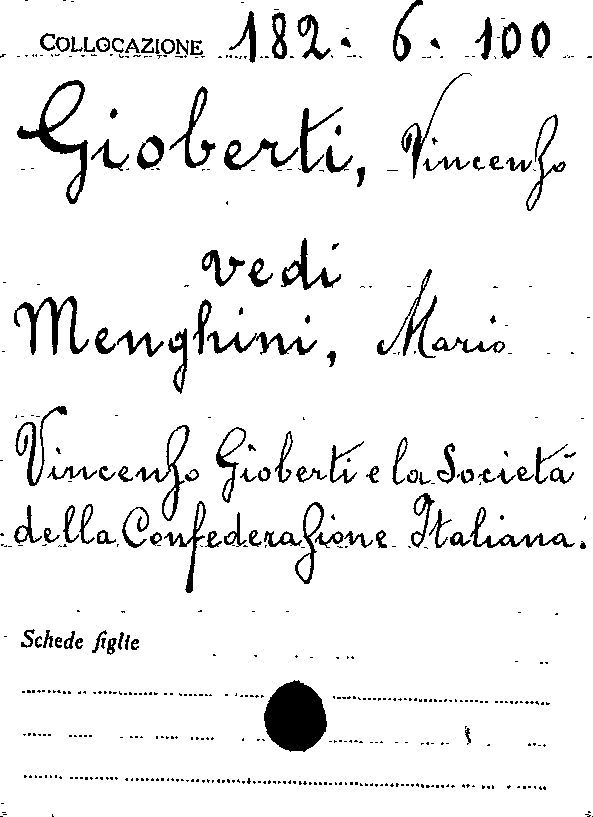 COLLOCAZIONE 182. 6. 100
Gioberti, Vincenzo
vedi
Menghini, Mario
Vincenzo Gioberti e la Società
della Confederazione Italiana.
Schede figlie